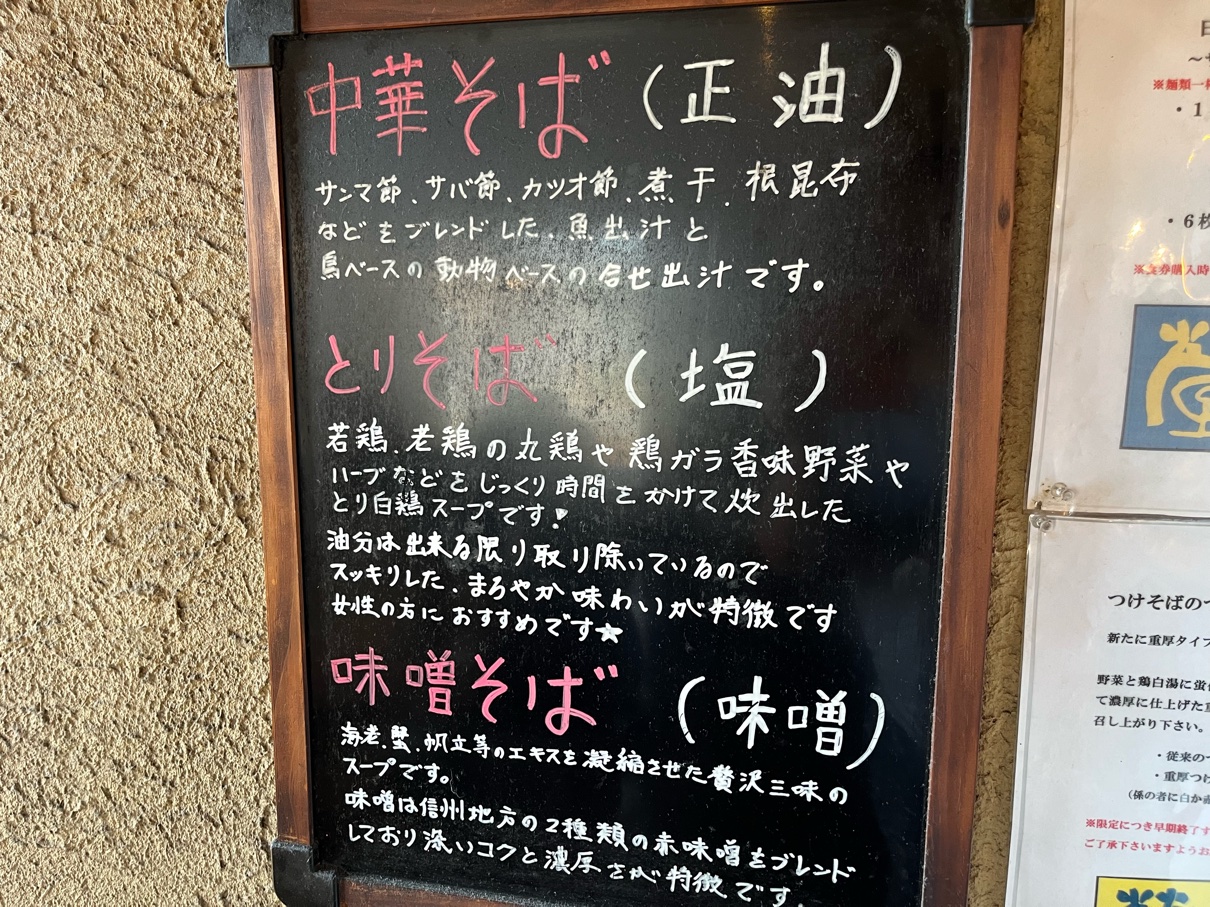 中華そば (正油)
サンマ節、サバ節、カツオ節、煮干、根昆布
などをブレンドした、魚出汁と
鳥ベースの動物ベースの合せ出汁です。
とりそば (塩)
若鶏、老鶏の丸鶏や鶏ガラ香味野菜や
ハーブなどをじっくり時間をかけて炊出した
とり白鶏スープです!
油分は出来る限り取り除いているので
スッキリした、まろやか味わいが特徴です
女性の方におすすめです☆
味噌そば (味噌)
海老、蟹、帆立等のエキスを凝縮させた贅沢三味の
スープです。
味噌は信州地方の2種類の赤味噌をブレンド
しており深いコクと濃厚さが特徴です。
※麺類一
・1
・6枚
※食券購入時
つけそばの
新たに重厚タイプ
野菜と鶏白湯に
て濃厚に仕上げた
召し上がり下さい。
・従来の
・重厚つけ
(係の者に白か
※限定につき早期終了す
ご了承下さいますようお